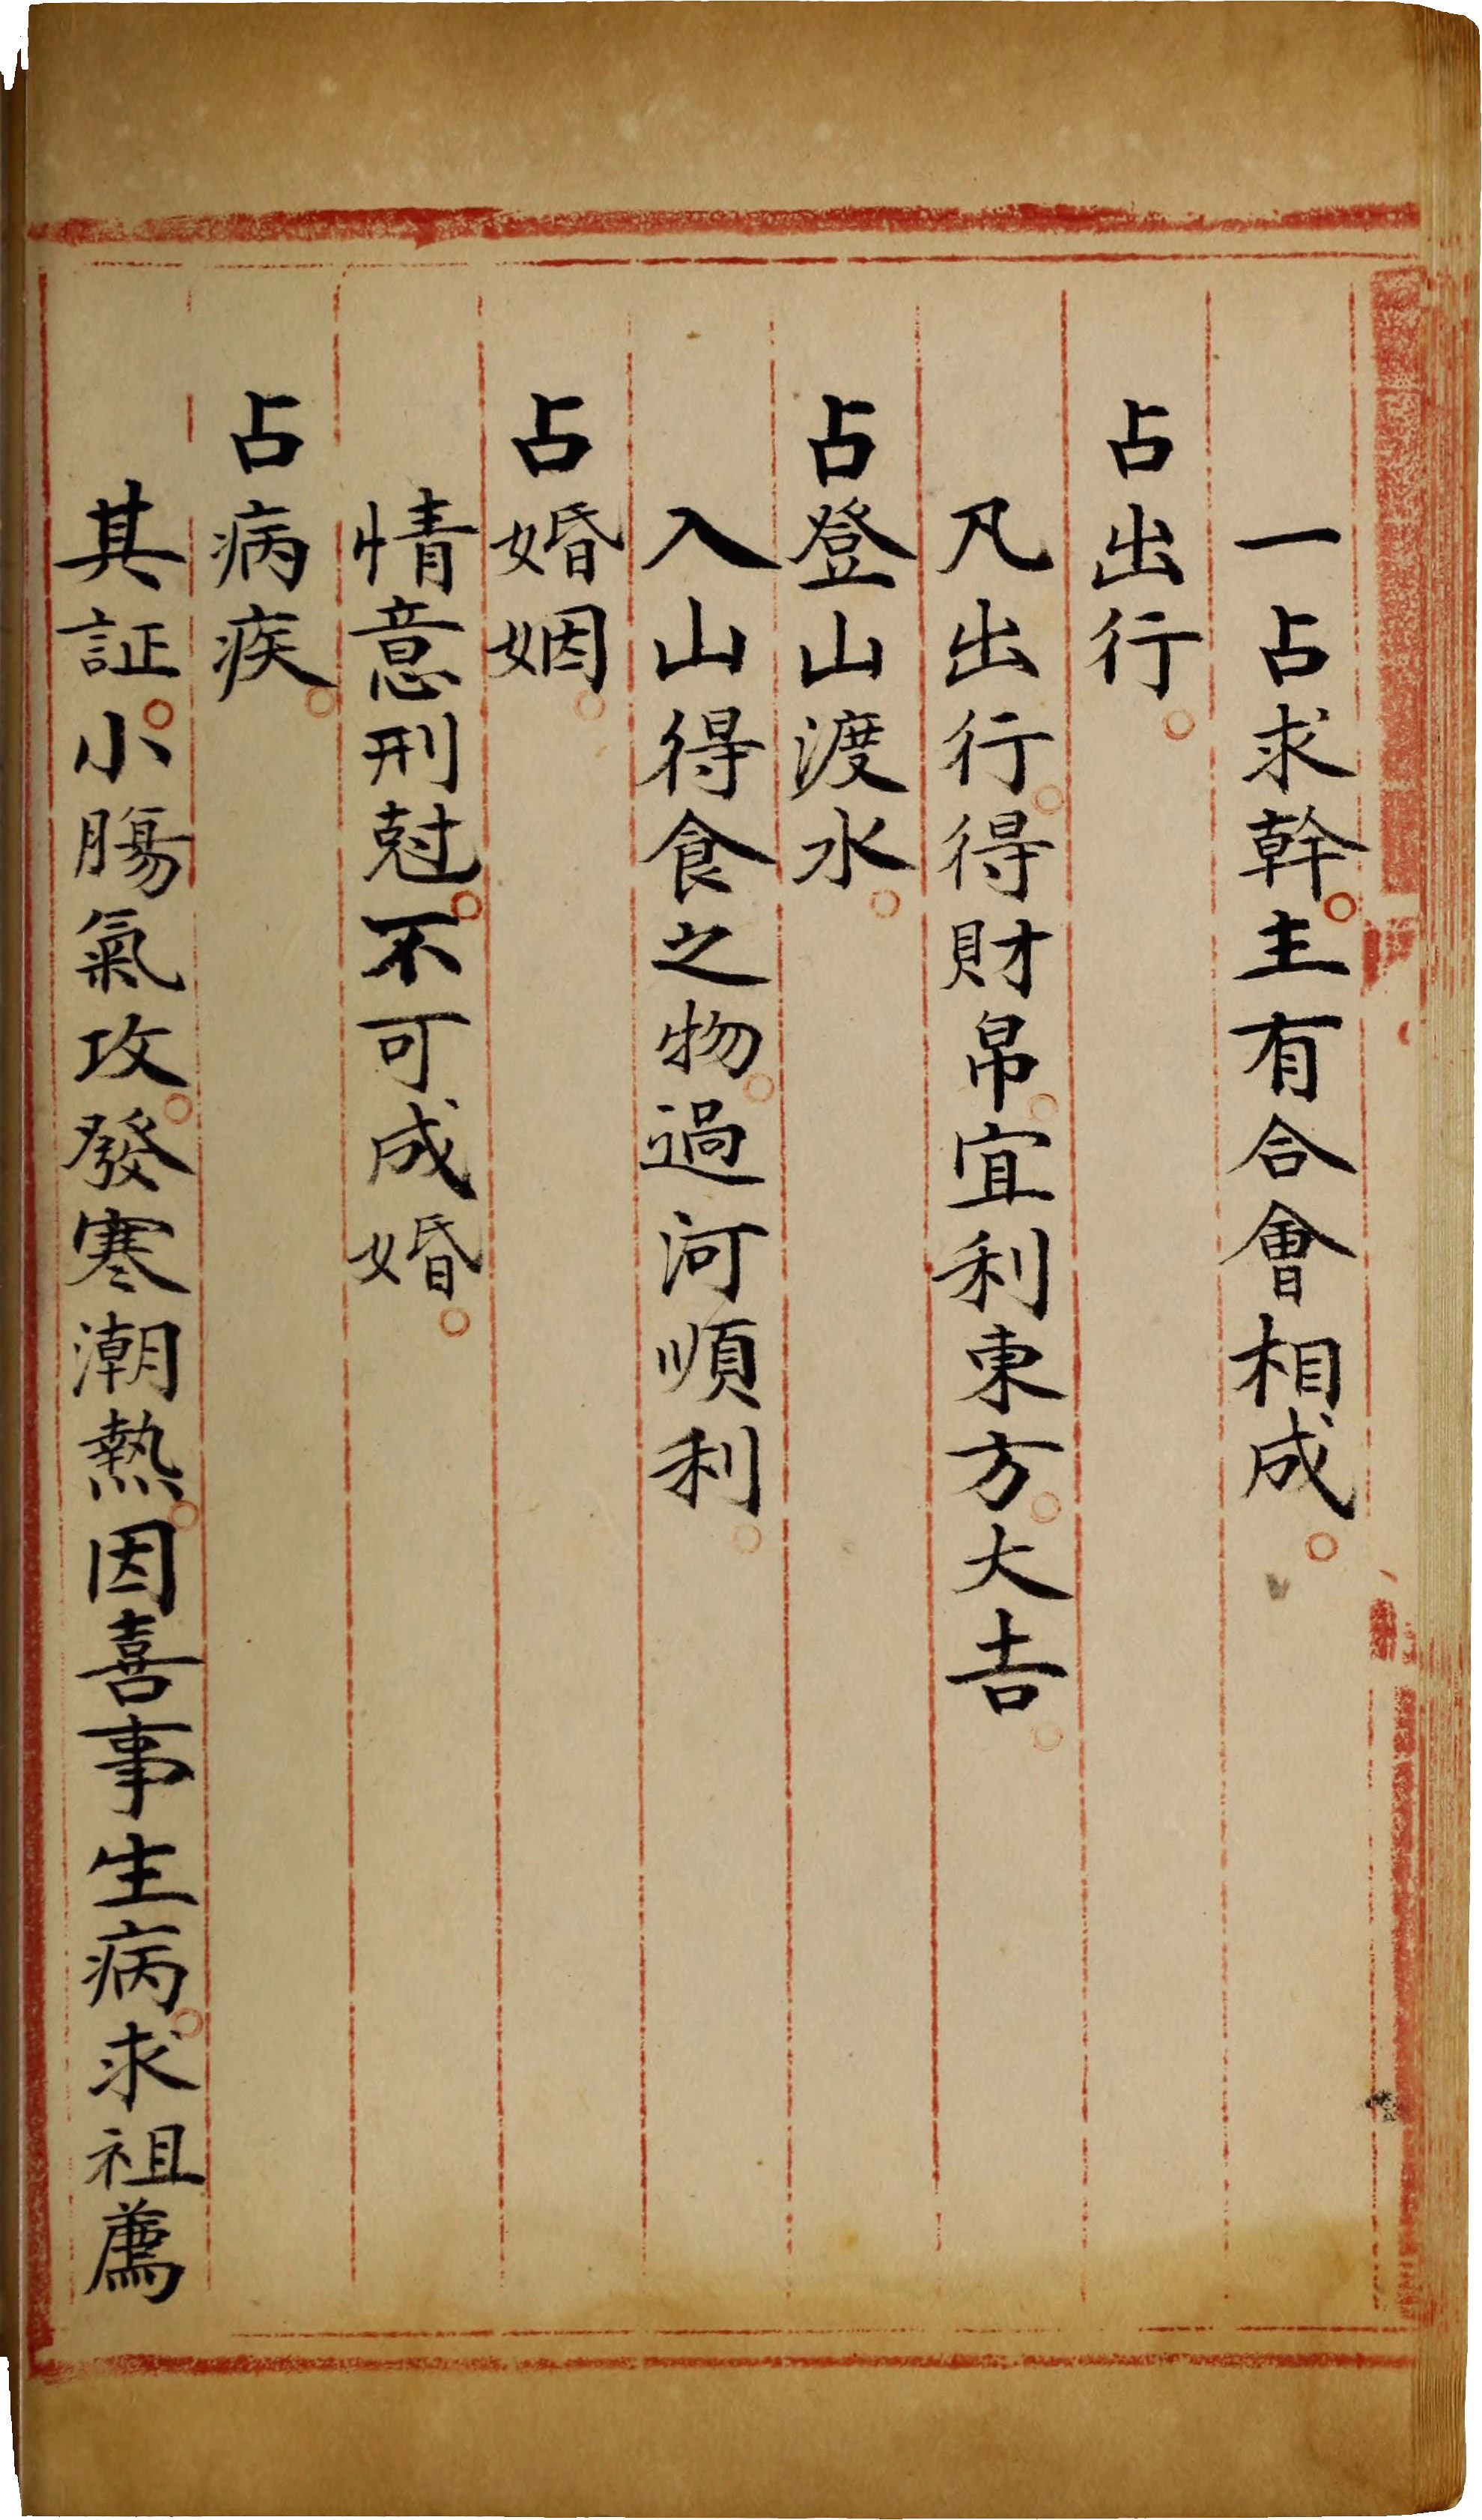 一占求幹。主有合會相成。
占出行。
凡出行。得財帛。宜利東方。大吉。
占登山渡水。
入山得食之物。過河順利。
占婚姻。
情意刑尅。不可成婚。
占病疾。
其証。小腸氣攻。發寒潮熱。因喜事生病。求祖薦